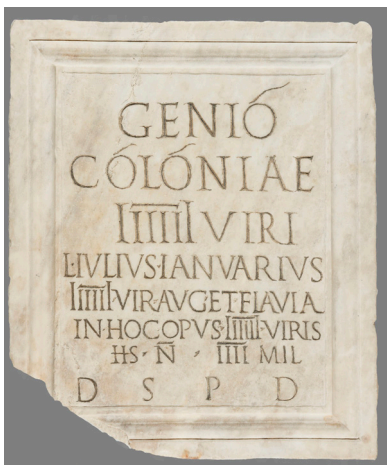 GENIÓ
CÓLÓNIAE
IIIIII VIRI
L·IVLIVS·IANVARIVS
IIIIII VIR·AVG·ET FLAVIA
IN·HOC OPVS·IIIIII·VIRIS
HS·N̄·IIII MIL
D S P D